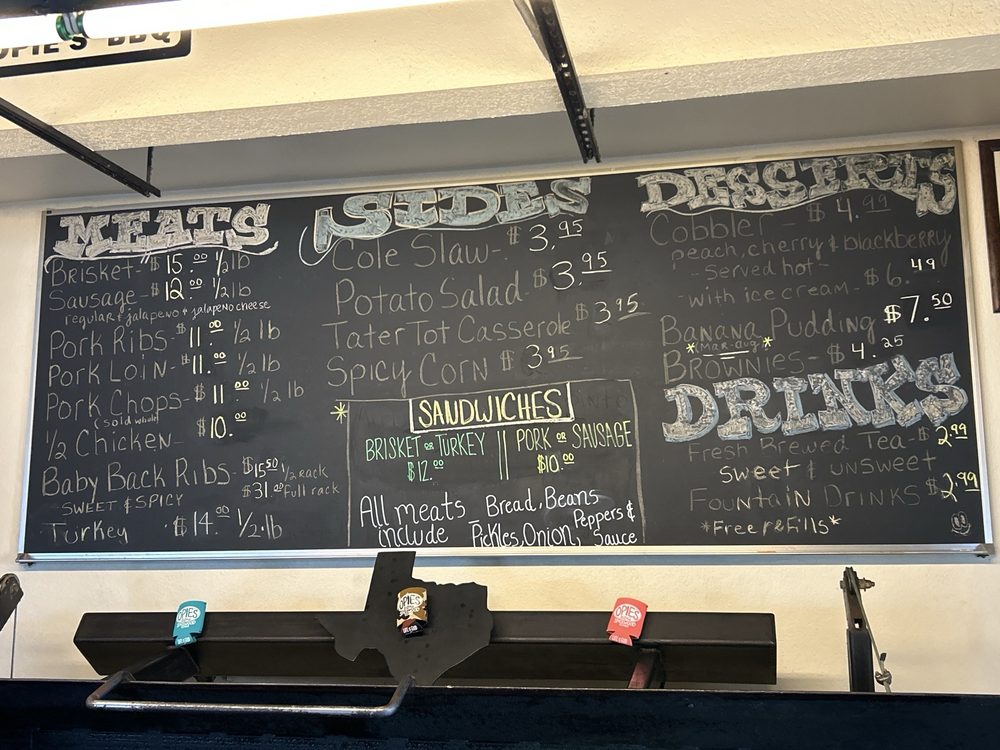 OPIE'S BBQ
MEATS
Brisket- $15.00 1/2 lb
Sausage- $12.00 1/2 lb
regular & jalapeno & jalapeno cheese
Pork Ribs- $11.00 1/2 lb
Pork Loin- $11.00 1/2 lb
Pork Chops- $11.00 1/2 lb
(sold whole)
1/2 Chicken- $10.00
Baby Back Ribs- $15.50 1/2 rack
SWEET & SPICY $31.00 Full rack
Turkey - $14.00 1/2·lb
SIDES
Cole Slaw- $3.95
Potato Salad- $3.95
Tater Tot Casserole $3.95
Spicy Corn $3.95
SANDWICHES
BRISKET or TURKEY
$12.00
PORK or SAUSAGE
$10.00
All meats include
Bread, Beans
Pickles, Onion, Peppers & Sauce
DESSERTS
Cobbler - $4.99
peach, cherry & blackberry
- served hot -
- with ice cream- $6.49
Banana Pudding $7.50
*Mar-Aug*
Brownies- $4.25
DRINKS
Fresh Brewed Tea- $2.99
Sweet & unsweet
Fountain Drinks $2.99
*Free refills*
OPIES
OPIES
OPIES